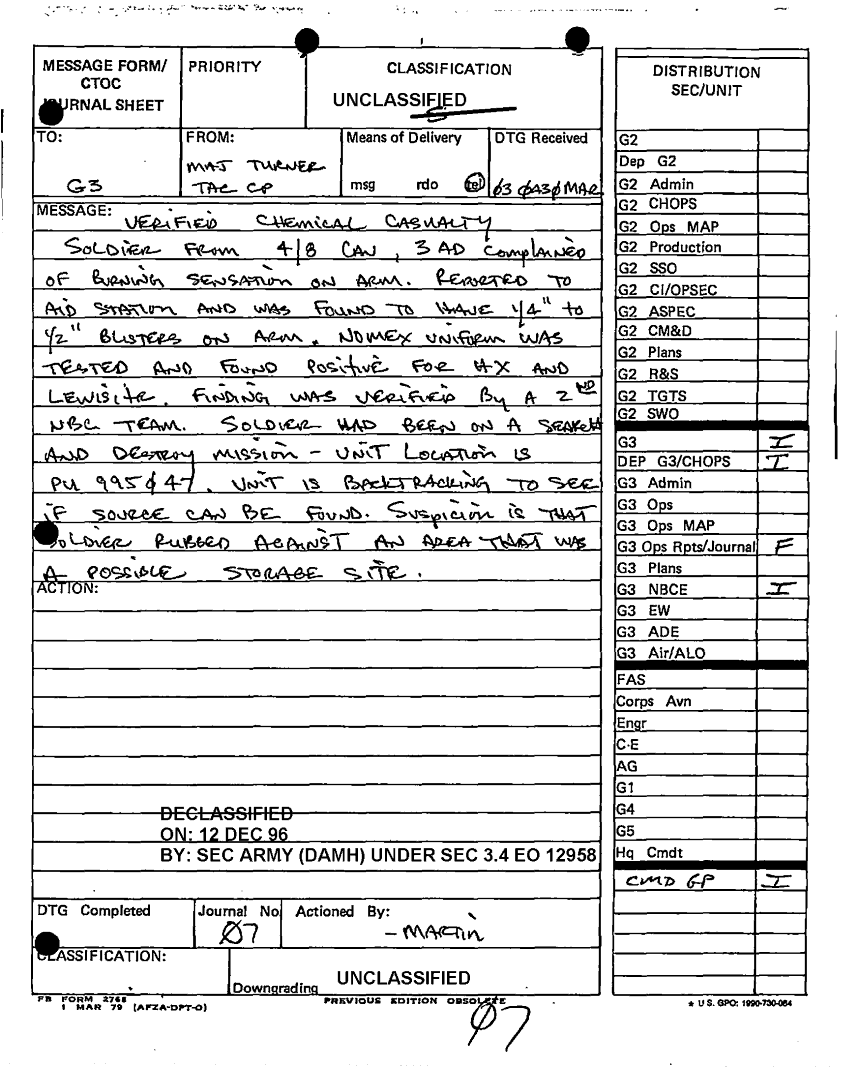 MESSAGE FORM/
CTOC
JOURNAL SHEET
PRIORITY
CLASSIFICATION
UNCLASSIFIED
TO:
G3
FROM:
MAJ TURNER
TAC CP
Means of Delivery
msg rdo tel
DTG Received
Ø3 Ø43Ø MAR
MESSAGE:
VERIFIED CHEMICAL CASUALTY
SOLDIER FROM 4/8 CAV, 3 AD COMPLAINED
OF BURNING SENSATION ON ARM. REPORTED TO
AID STATION AND WAS FOUND TO HAVE 1/4" to
1/2" BLISTERS ON ARM. NOMEX UNIFORM WAS
TESTED AND FOUND POSITIVE FOR HX AND
LEWISITE. FINDING WAS VERIFIED BY A 2ND
NBC TEAM. SOLDIER HAD BEEN ON A SEARCH
AND DESTROY MISSION - UNIT LOCATION IS
PU 995Ø47. UNIT IS BACKTRACKING TO SEE
IF SOURCE CAN BE FOUND. SUSPICION IS THAT
SOLDIER RUBBED AGAINST AN AREA THAT WAS
A POSSIBLE STORAGE SITE.
ACTION:
DECLASSIFIED
ON: 12 DEC 96
BY: SEC ARMY (DAMH) UNDER SEC 3.4 EO 12958
DTG Completed
Journal No
Ø7
Actioned By:
- MARTIN
CLASSIFICATION:
Downgrading
UNCLASSIFIED
FB FORM 2768
1 MAR 79 (AFZA-DPT-O)
PREVIOUS EDITION OBSOLETE
Ø7
DISTRIBUTION
SEC/UNIT
G2
Dep G2
G2 Admin
G2 CHOPS
G2 Ops MAP
G2 Production
G2 SSO
G2 CI/OPSEC
G2 ASPEC
G2 CM&D
G2 Plans
G2 R&S
G2 TGTS
G2 SWO
G3 I
DEP G3/CHOPS I
G3 Admin
G3 Ops
G3 Ops MAP
G3 Ops Rpts/Journal F
G3 Plans
G3 NBCE I
G3 EW
G3 ADE
G3 Air/ALO
FAS
Corps Avn
Engr
C-E
AG
G1
G4
G5
Hq Cmdt
CMD GP I
★ U.S. GPO: 1990-730-064